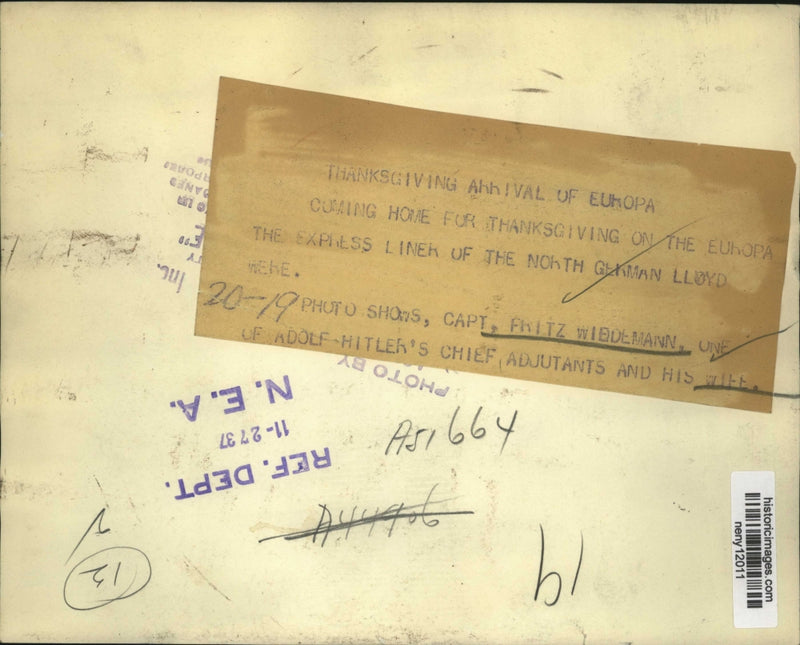 THANKSGIVING ARRIVAL OF EUROPA
COMING HOME FOR THANKSGIVING ON THE EUROPA
THE EXPRESS LINER OF THE NORTH GERMAN LLOYD
WERE.
20-19 PHOTO SHOWS, CAPT, FRITZ WIEDEMANN, ONE
OF ADOLF HITLER'S CHIEF ADJUTANTS AND HIS WIFE.
Inc.
PHOTO BY
N.E.A.
11-27 37
REF. DEPT.
A51664
A44906
12
19
historicimages.com
neny12011